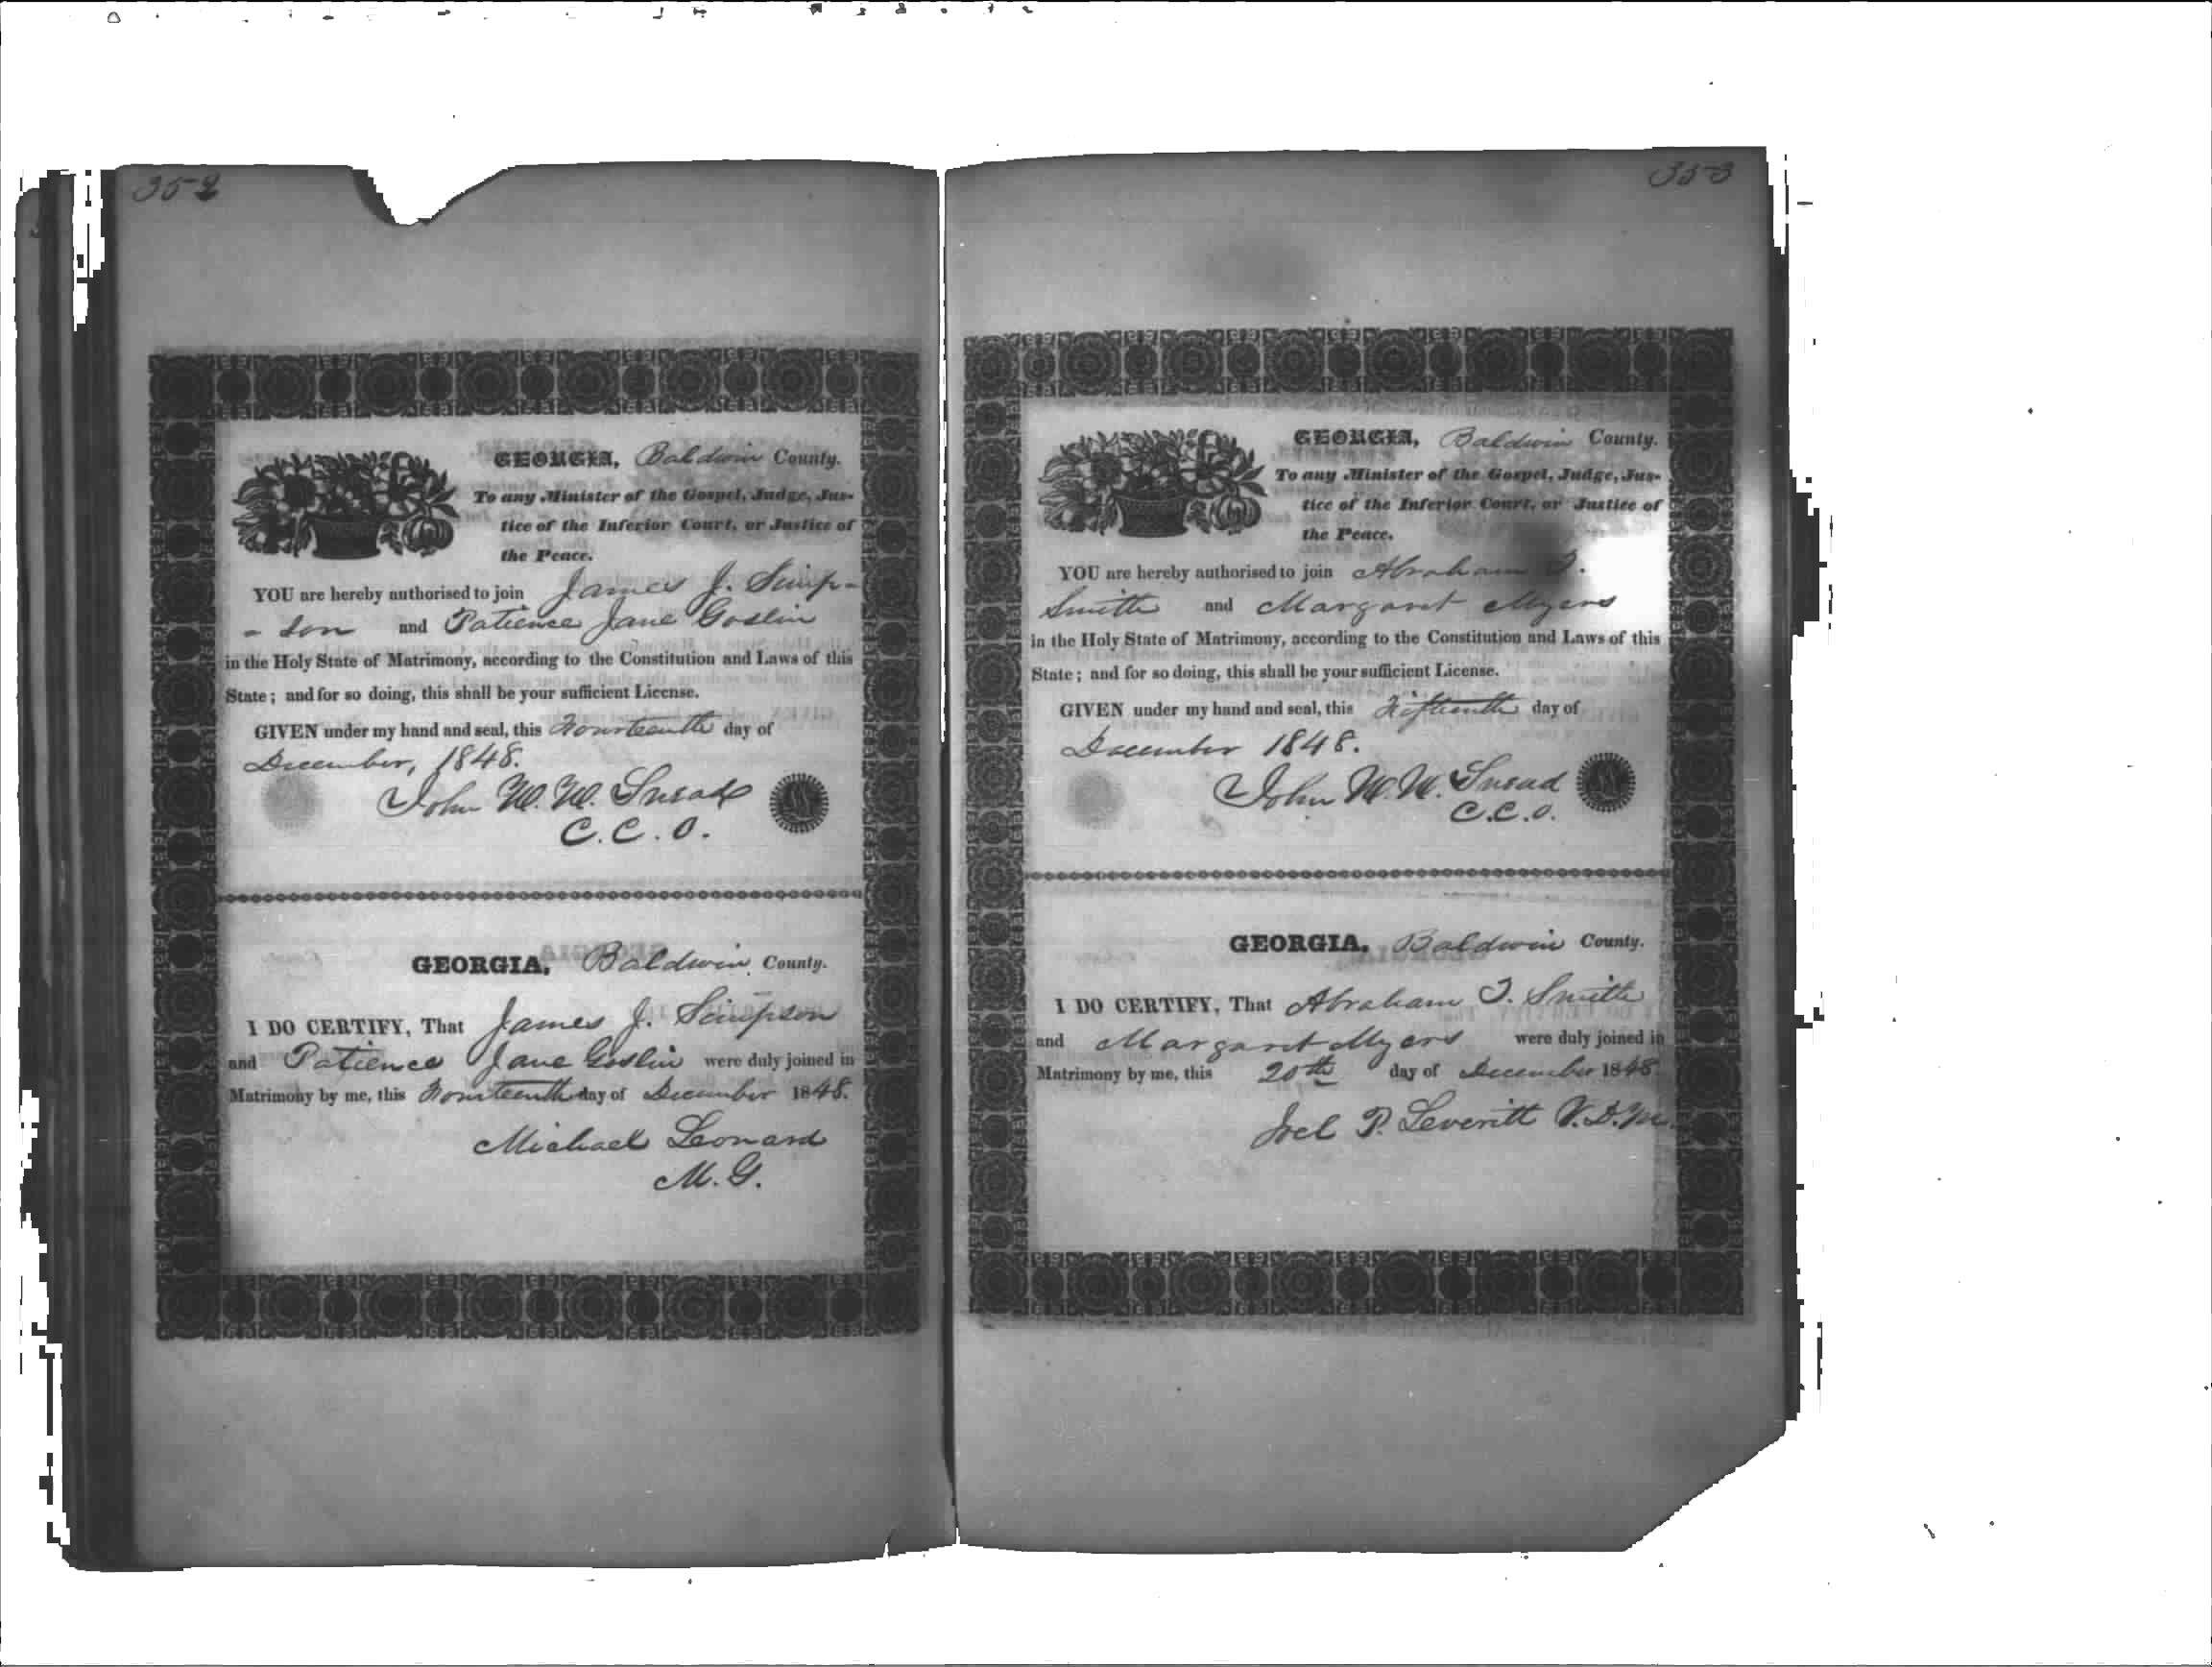 352
GEORGIA, Baldwin County.
To any Minister of the Gospel, Judge, Jus-
tice of the Inferior Court, or Justice of
the Peace.
YOU are hereby authorised to join James J. Simp-
- son and Patience Jane Goslin
in the Holy State of Matrimony, according to the Constitution and Laws of this
State; and for so doing, this shall be your sufficient License.
GIVEN under my hand and seal, this Fourteenth day of
December, 1848.
John W. W. Snead
C.C.O.
GEORGIA, Baldwin County.
I DO CERTIFY, That James J. Simpson
and Patience Jane Goslin were duly joined in
Matrimony by me, this Fourteenth day of December 1848.
Michael Leonard
M.G.
353
GEORGIA, Baldwin County.
To any Minister of the Gospel, Judge, Jus-
tice of the Inferior Court, or Justice of
the Peace.
YOU are hereby authorised to join Abraham
Smith and Margaret Myers
in the Holy State of Matrimony, according to the Constitution and Laws of this
State; and for so doing, this shall be your sufficient License.
GIVEN under my hand and seal, this Fifteenth day of
December 1848.
John W. W. Snead
C.C.O.
GEORGIA, Baldwin County.
I DO CERTIFY, That Abraham Smith
and Margaret Myers were duly joined in
Matrimony by me, this 20th day of December 1848
Joel P. Leveritt V.D.M.